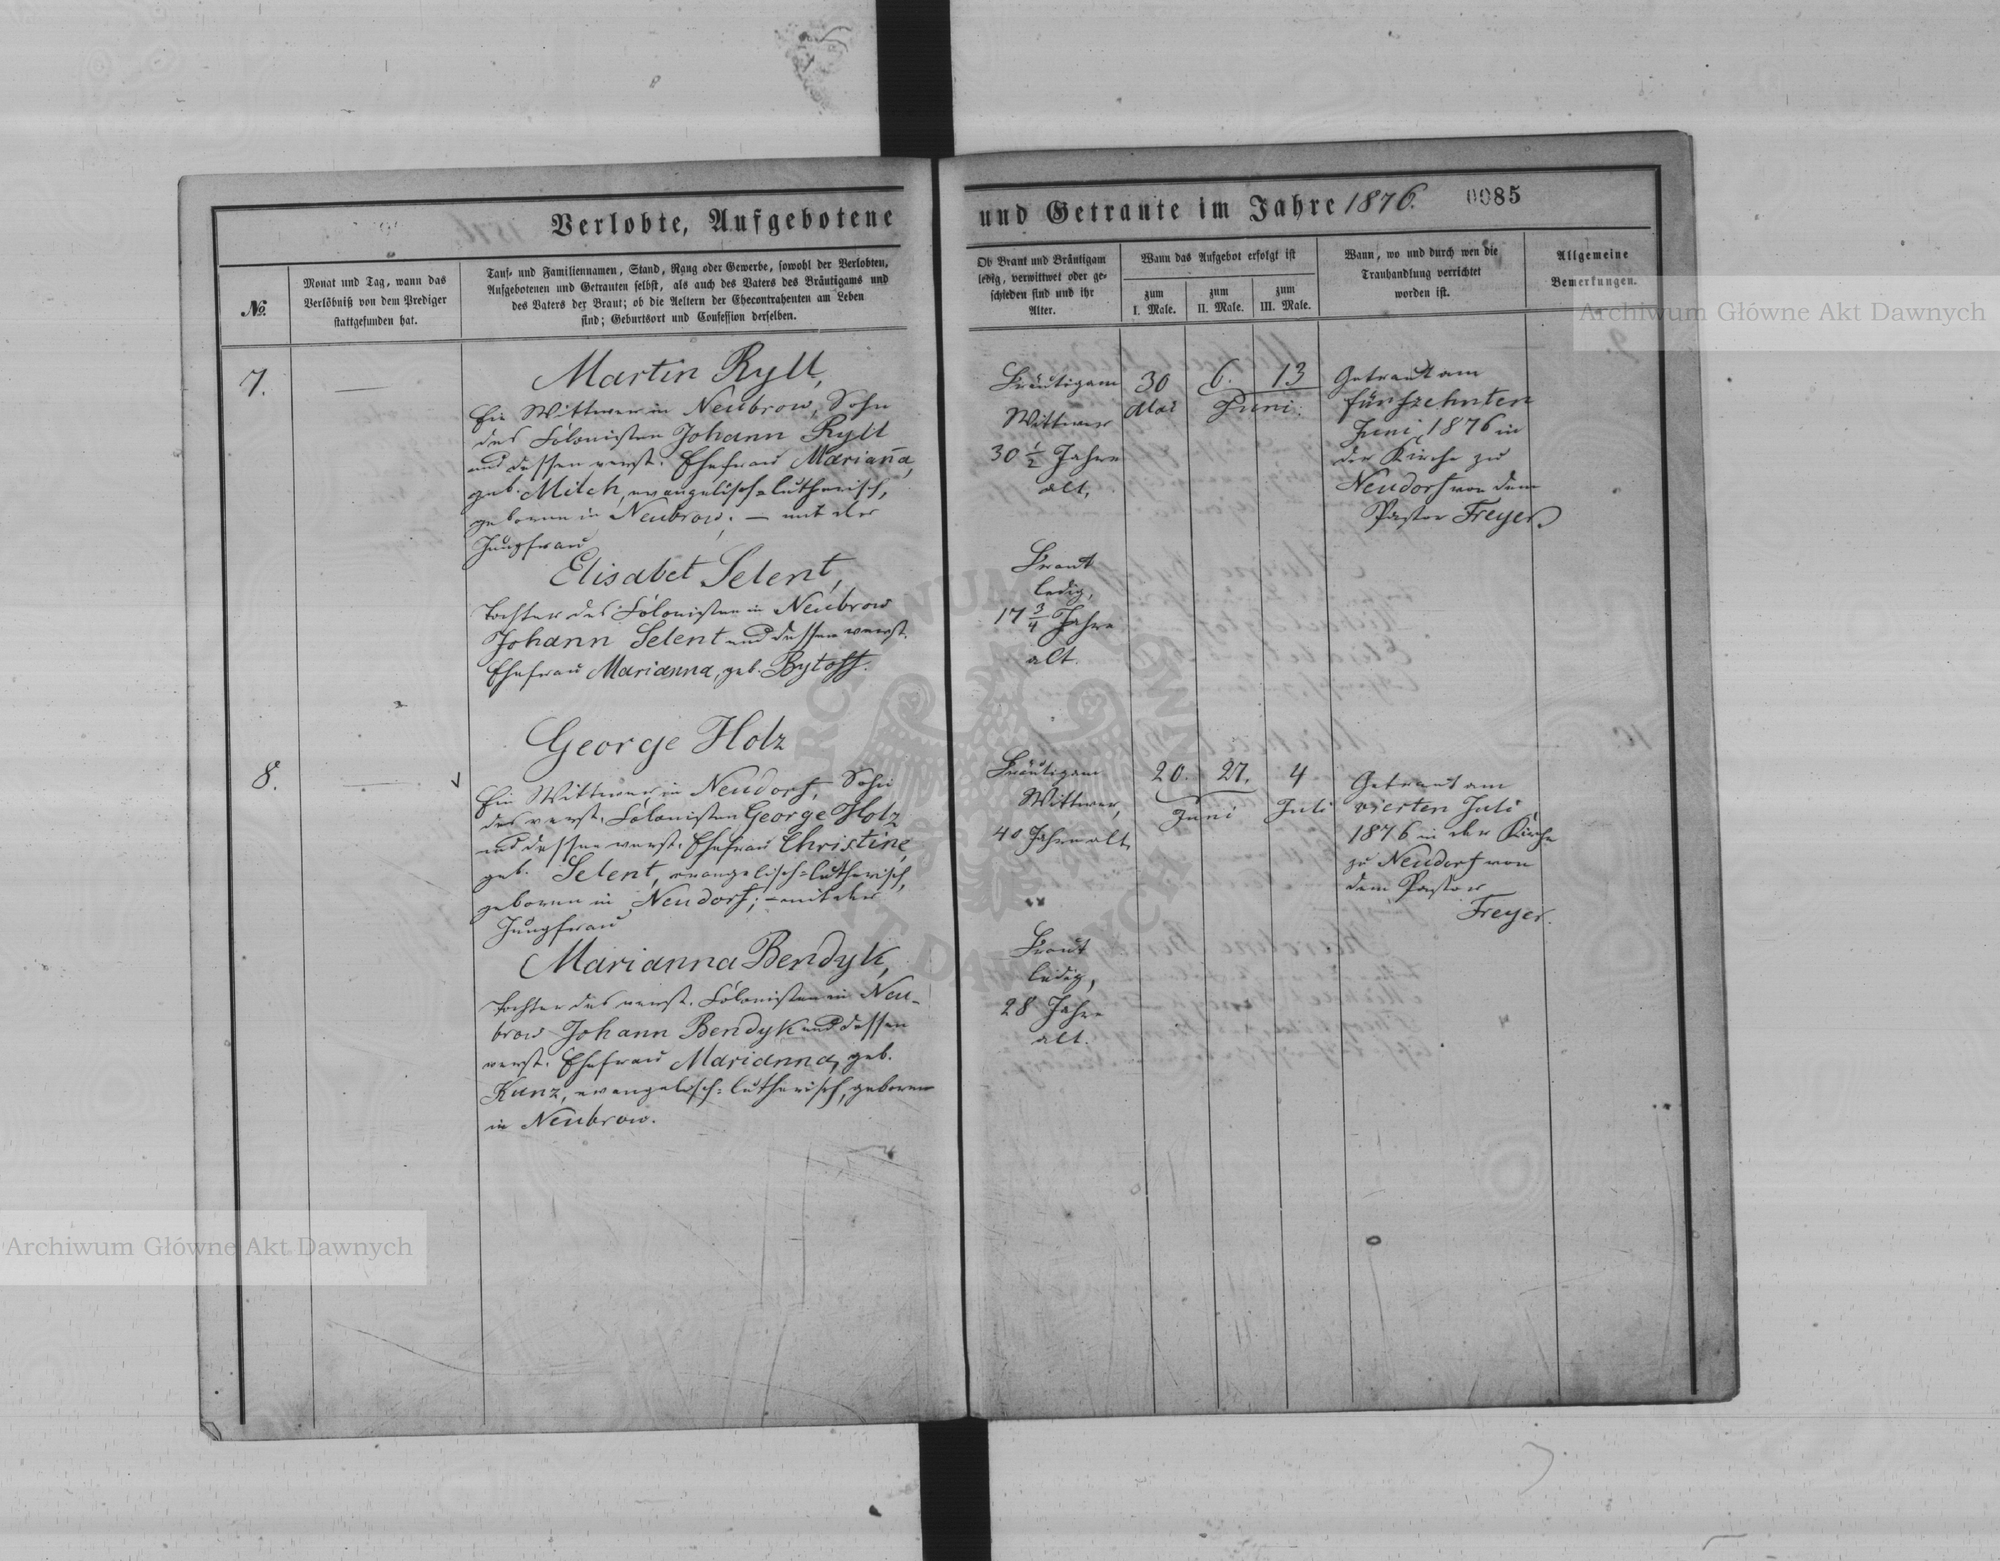 Verlobte, Aufgebotene und Getraute im Jahre 1876. 0085
No.
Monat und Tag, wann das
Verlöbniß von dem Prediger
stattgefunden hat.
Tauf- und Familiennamen, Stand, Rang oder Gewerbe, sowohl der Verlobten,
Aufgebotenen und Getrauten selbst, als auch des Vaters des Bräutigams und
des Vaters der Braut; ob die Aeltern der Ehecontrahenten am Leben
sind; Geburtsort und Confession derselben.
Ob Braut und Bräutigam
ledig, verwittwet oder ge-
schieden sind und ihr
Alter.
Wann das Aufgebot erfolgt ist
zum
I. Male.
zum
II. Male.
zum
III. Male.
Wann, wo und durch wen die
Trauhandlung verrichtet
worden ist.
Allgemeine
Bemerkungen.
7.
Martin Ryll,
Ein Wittwer in Neubrow, Sohn
des Colonisten Johann Ryll
und dessen verst. Ehefrau Marianna,
geb. Milch, evangelisch=lutherisch,
geboren in Neubrow; — mit der
Jungfrau
Elisabet Selent,
Tochter des Colonisten in Neubrow
Johann Selent und dessen verst.
Ehefrau Marianna, geb. Rytoff.
Bräutigam
Wittwer
30 1/2 Jahre
alt,
Braut
ledig,
17 3/4 Jahre
alt.
30 6. 13
Mai Juni.
Getraut am
fünfzehnten
Juni 1876 in
der Kirche zu
Neudorf von dem
Pastor Freyer.
8.
George Holz
Ein Wittwer in Neudorf, Sohn
des verst. Colonisten George Holz
und dessen verst. Ehefrau Christine,
geb. Selent, evangelisch=lutherisch,
geboren in Neudorf; — mit der
Jungfrau
Marianna Bendyk,
Tochter des verst. Colonisten in Neu-
brow Johann Bendyk und dessen
verst. Ehefrau Marianna, geb.
Kunz, evangelisch=lutherisch, geboren
in Neubrow.
Bräutigam
Wittwer,
40 Jahre alt,
Braut
ledig,
28 Jahre
alt.
20. 27. 4
Juni Juli
Getraut am
vierten Juli
1876 in der Kirche
zu Neudorf von
dem Pastor
Freyer.
Archiwum Główne Akt Dawnych
Archiwum Główne Akt Dawnych
ARCHIWUM GŁÓWNE AKT DAWNYCH